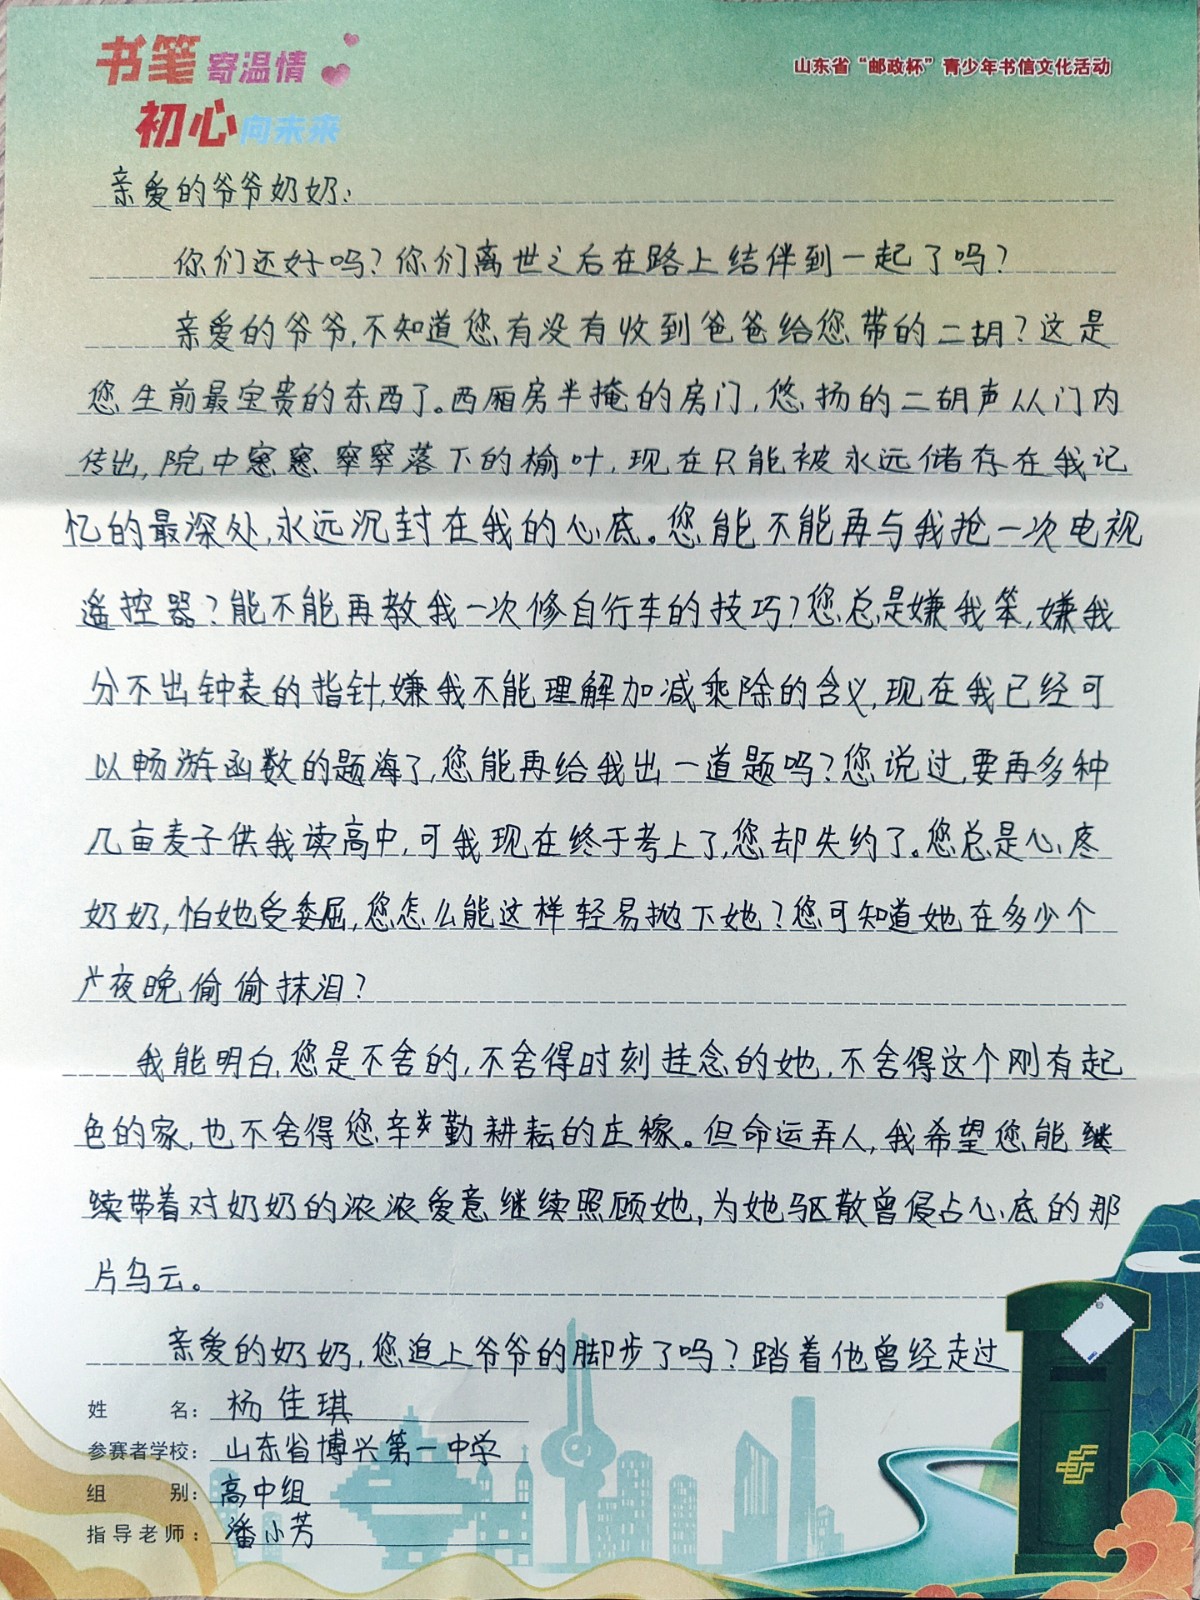 书笔寄温情
初心向未来
山东省“邮政杯”青少年书信文化活动
亲爱的爷爷奶奶:
你们还好吗?你们离世之后在路上结伴到一起了吗?
亲爱的爷爷,不知道您有没有收到爸爸给您带的二胡?这是
您生前最宝贵的东西了。西厢房半掩的房门,悠扬的二胡声从门内
传出,院中窸窸窣窣落下的榆叶,现在只能被永远储存在我记
忆的最深处,永远沉封在我的心底。您能不能再与我抢一次电视
遥控器?能不能再教我一次修自行车的技巧?您总是嫌我笨,嫌我
分不出钟表的指针,嫌我不能理解加减乘除的含义,现在我已经可
以畅游函数的题海了,您能再给我出一道题吗?您说过,要再多种
几亩麦子供我读高中,可我现在终于考上了,您却失约了。您总是心疼
奶奶,怕她受委屈,您怎么能这样轻易抛下她?您可知道她在多少个
夜晚偷偷抹泪?
我能明白,您是不舍的,不舍得时刻挂念的她,不舍得这个刚有起
色的家,也不舍得您辛勤耕耘的庄稼。但命运弄人,我希望您能继
续带着对奶奶的浓浓爱意继续照顾她,为她驱散曾侵占心底的那
片乌云。
亲爱的奶奶,您追上爷爷的脚步了吗?踏着他曾经走过
姓 名: 杨佳琪
参赛者学校: 山东省博兴第一中学
组 别: 高中组
指导老师: 潘小芳